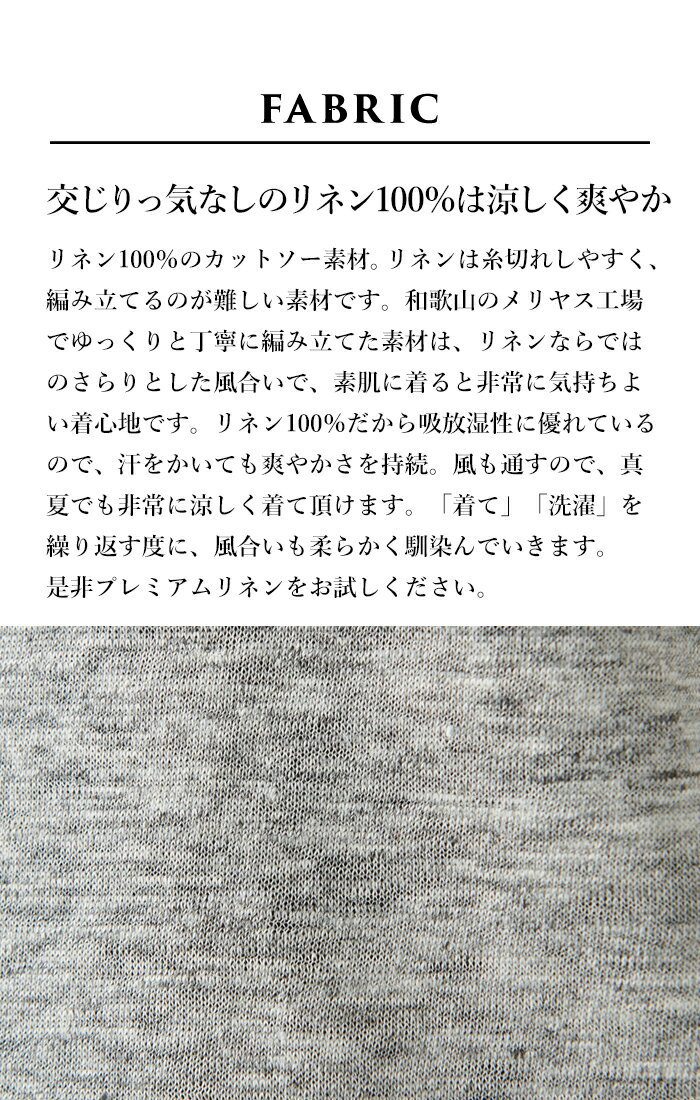 FABRIC
交じりっ気なしのリネン100%は涼しく爽やか
リネン100%のカットソー素材。リネンは糸切れしやすく、
編み立てるのが難しい素材です。和歌山のメリヤス工場
でゆっくりと丁寧に編み立てた素材は、リネンならでは
のさらりとした風合いで、素肌に着ると非常に気持ちよ
い着心地です。リネン100%だから吸放湿性に優れている
ので、汗をかいても爽やかさを持続。風も通すので、真
夏でも非常に涼しく着て頂けます。「着て」「洗濯」を
繰り返す度に、風合いも柔らかく馴染んでいきます。
是非プレミアムリネンをお試しください。